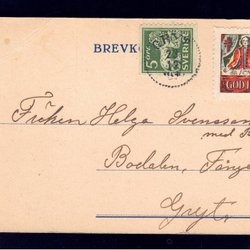 BREVKO
5 ÖRE
SVERIGE
GOD J
Fröken Helga Svensson
med
Bodalen,
Gryt